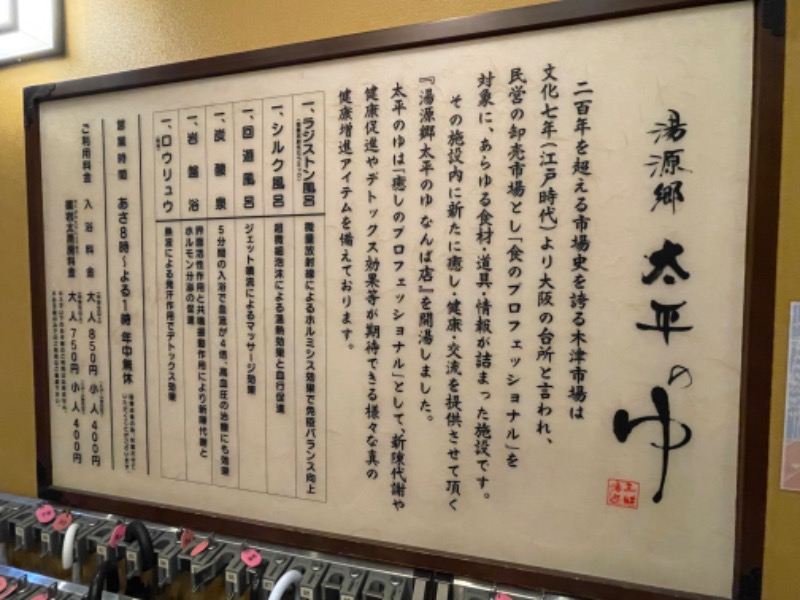 湯源郷 太平のゆ
二百年を超える市場史を誇る木津市場は
文化七年(江戸時代)より大阪の台所と言われ、
民営の卸売市場とし「食のプロフェッショナル」を
対象に、あらゆる食材・道具・情報が詰まった施設です。
その施設内に新たに癒し・健康・交流を提供させて頂く
『湯源郷太平のゆ なんば店』を開湯しました。
太平のゆは「癒しのプロフェッショナル」として、新陳代謝や
健康促進やデトックス効果等が期待できる様々な真の
健康増進アイテムを備えております。
一、ラジストン風呂 微量放射線によるホルミシス効果で免疫バランス向上
一、シルク風呂 超微細泡沫による温熱効果と血行促進
一、回遊風呂 ジェット噴流によるマッサージ効果
一、炭酸泉 5分間の入浴で血流が4倍、高血圧の治療にも効果
一、岩盤浴 界面活性作用と共鳴振動作用により新陳代謝と
ホルモン分泌の促進
一、ロウリュウ 熱波による発汗作用でデトックス効果
営業時間 あさ8時〜よる1時 年中無休
ご利用料金 入浴料金 大人 850円 小人 400円
大人 750円 小人 400円